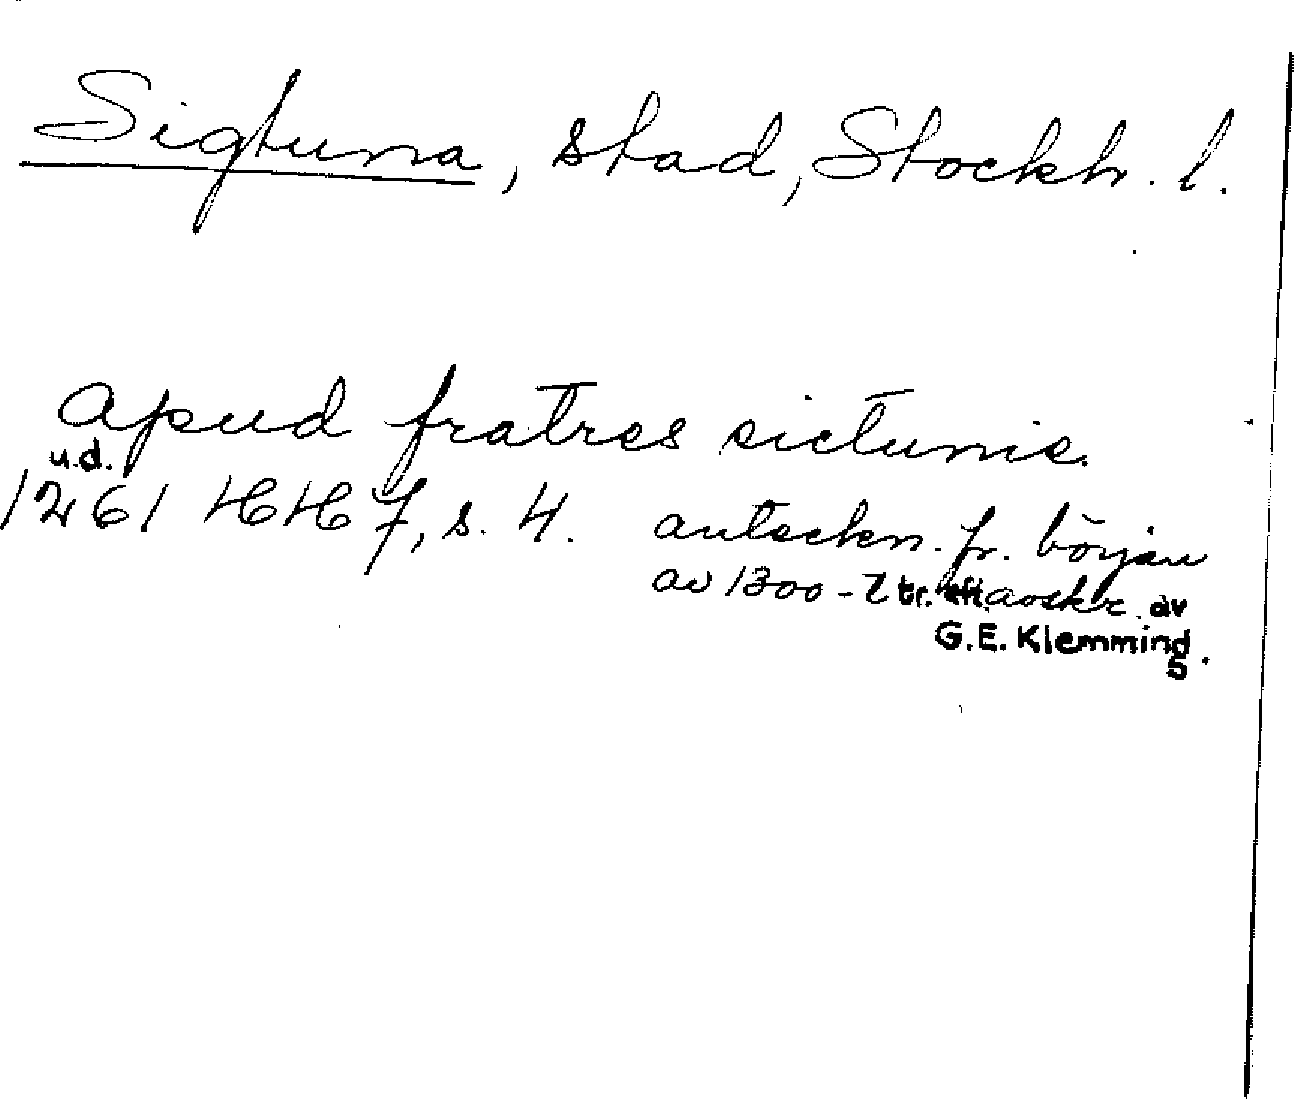 Sigtuna, stad, Stockh. l.
apud fratres sictunie.
u.d.
1261 HH 7, s. 4. anteckn. fr. början
av 1300-t tr. eft. avskr. av
G.E. Klemmind
5.